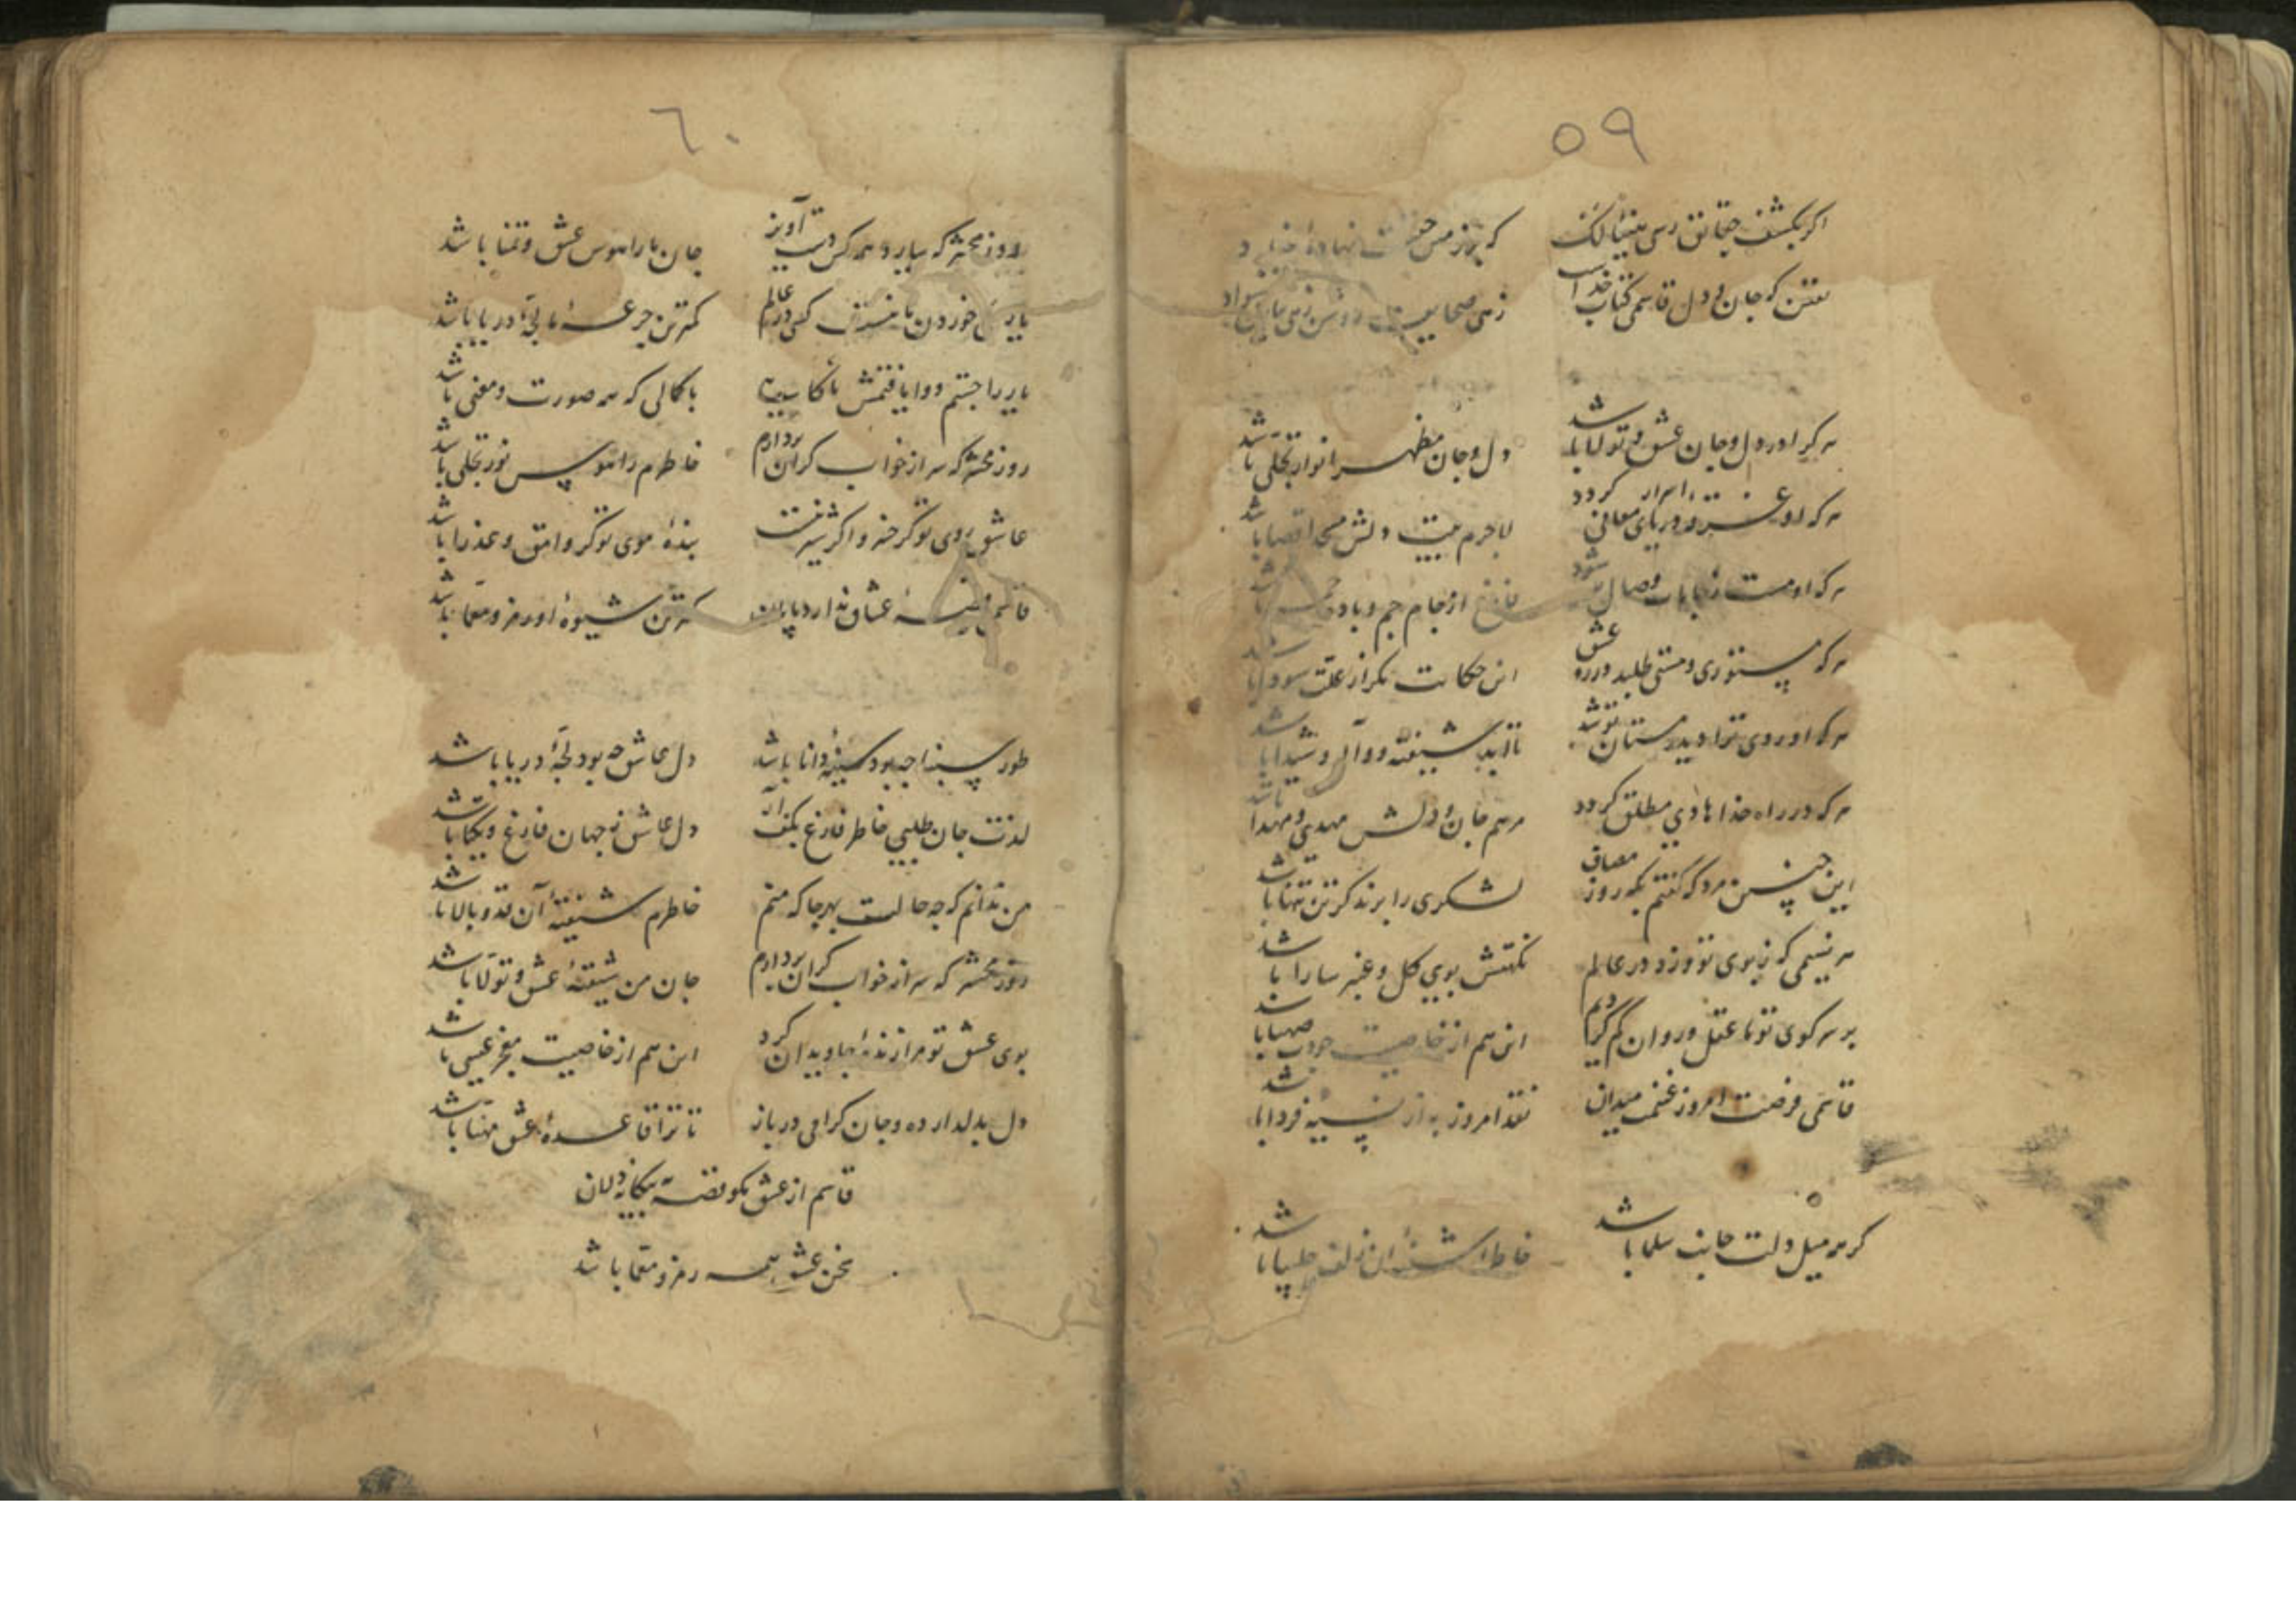 ٥٩
اگر بکشف حقایق رسی
که جان و دل قاسمی کتاب خداست
هر کرا در دل و جان عشق و تولا باشد
دل و جان مظهر انوار تجلی باشد
هر که او غرقه دریای معانی گردد
لاجرم
هر که او مست وصال شود
فارغ از جام جم و باده
هر که مستوری و مستی طلبد در ره عشق
این حکایت مگر از علت سودا باشد
هر که او روی ترا دید
تا ابد شیفته و واله و شیدا باشد
هر که در راه خدا هادی مطلق گردد
مرهم جان و دلش مهدی و مهدا باشد
این چنین مرد که گفتم بگه روز مصاف
لشکری را بزند گر تن تنها باشد
هر نسیمی که ز بوی تو وزد در عالم
نکهتش بوی گل و عنبر سارا باشد
بر سر کوی تو ما عقل و روان گم کردیم
این هم از خاصیت صهبا باشد
قاسمی فرصت امروز غنیمت میدان
نقد امروز به از نسیه فردا باشد
گر همه میل دلت جانب سلما باشد
خاطر آشفته آن زلف چلیپا باشد
٦٠
روز محشر که بیارد هر کس دست آویز
جان ما را هوس عشق و تمنا باشد
کمترین جرعه ما لجه دریا باشد
یار را جستم و وا یافتمش
با کمالی که همه صورت و معنی باشد
روز محشر که سر از خواب گران بردارم
خاطرم را هوس نور تجلی باشد
عاشق روی تو گر خسرو اگر شیرینست
بنده موی تو گر وامق و عذرا باشد
قاسم عشاق ندارد پایان
کمترین شیوه او رمز و معما باشد
طور سینا چه بود سینه دانا باشد
دل عاشق چه بود لجه دریا باشد
لذت جان طلبی خاطر فارغ بکف آر
دل عاشق ز جهان فارغ و یکتا باشد
من ندانم که چه حالست بهر جا که منم
خاطرم شیفته آن قد و بالا باشد
روز محشر که سر از خواب گران بردارم
جان من شیفته عشق و تولا باشد
بوی عشق تو مرا زنده جاویدان کرد
این هم از خاصیت معجز عیسی باشد
دل بدلدار ده و جان گرامی در باز
تا ترا قاعده عشق مهنا باشد
قاسم از عشق مگو قصه به بیگانه دلان
سخن عشق همه رمز و معما باشد